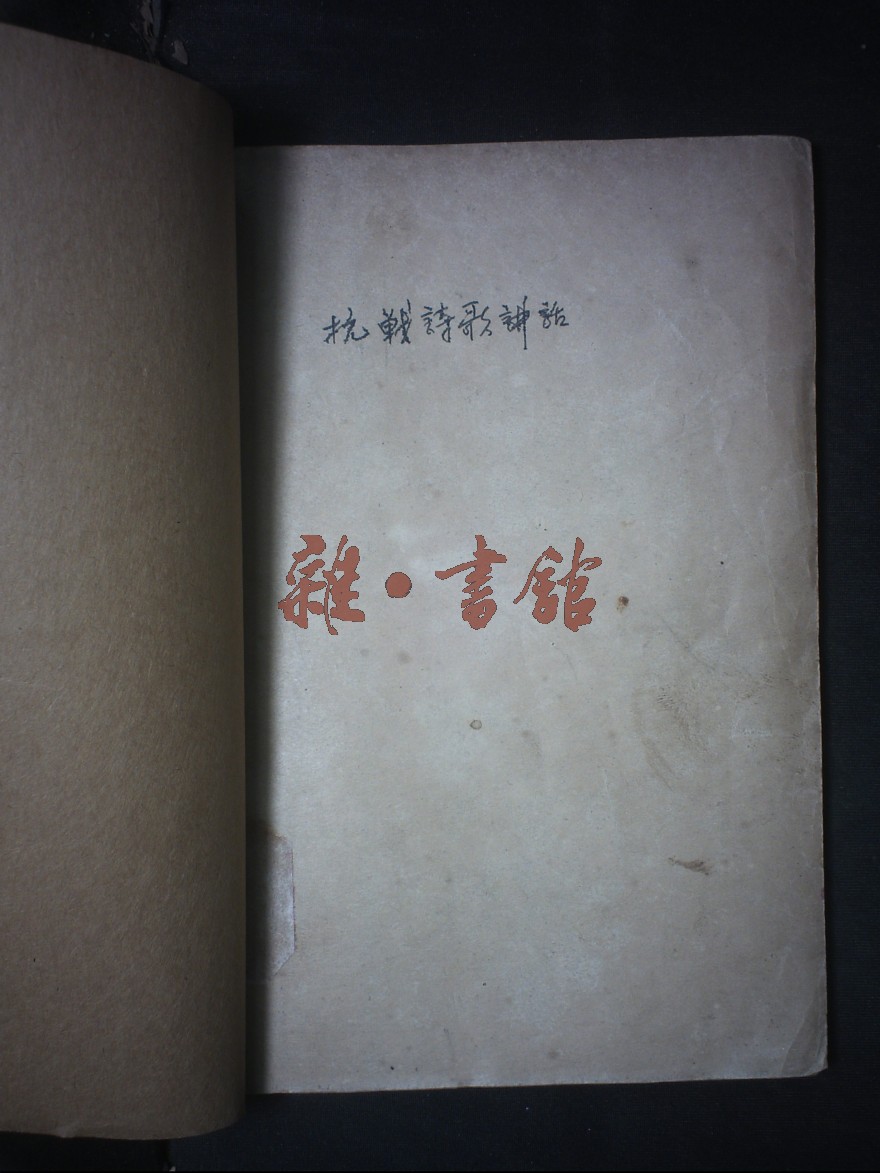 抗戰詩歌講話
雜·書館